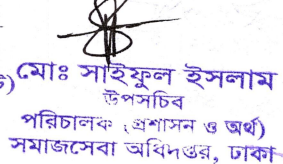 মোঃ সাইফুল ইসলাম
উপসচিব
পরিচালক (প্রশাসন ও অর্থ)
সমাজসেবা অধিদপ্তর, ঢাকা